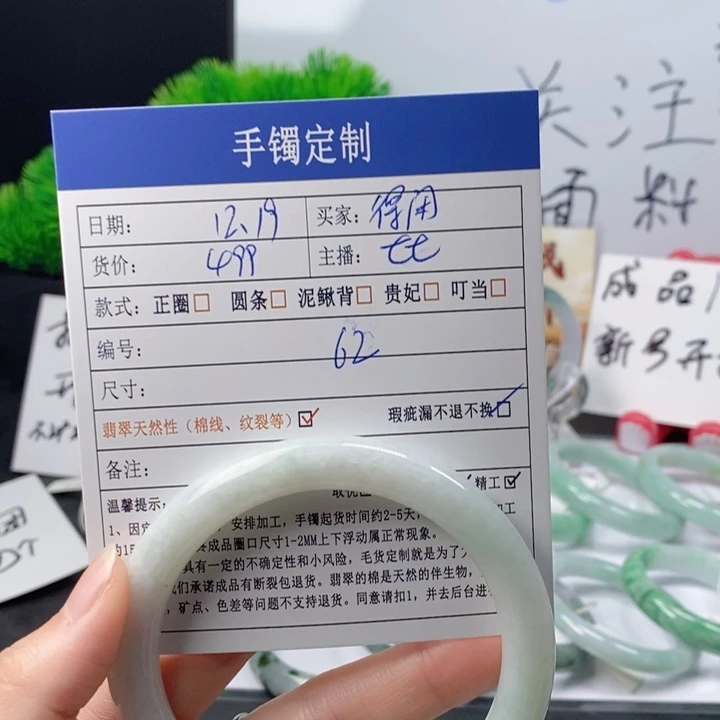 手镯定制
日期： 12.19 买家：得闲
货价： 499 主播：七七
款式：正圈 圆条 泥鳅背 贵妃 叮当
编号： 62
尺寸：
翡翠天然性（棉线、纹裂等） 瑕疵漏不退不换
备注：
精工
温馨提示：
1、因定
安排加工，手镯起货时间约2-5天，
加工
成品圈口尺寸1-2MM上下浮动属正常现象。
具有一定的不确定性和小风险，毛货定制就是为了
们承诺成品有断裂包退货。翡翠的棉是天然的伴生物，
，矿点、色差等问题不支持退货。同意请扣1，并去后台进
关注
面料
成品
新号开